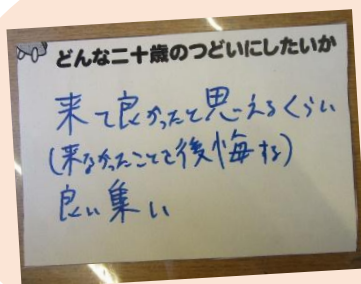 どんな二十歳のつどいにしたいか
来て良かったと思えるくらい
(来なかったことを後悔する)
良い集い